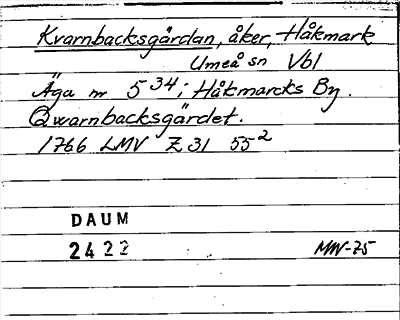 Kvarnbacksgärdan, åker, Håkmark
Umeå sn Vbl
Äga nr 5 34; Håkmarcks By.
Qwarnbacksgärdet.
1766 LMV Z 31 55²
DAUM
2422 MW-75